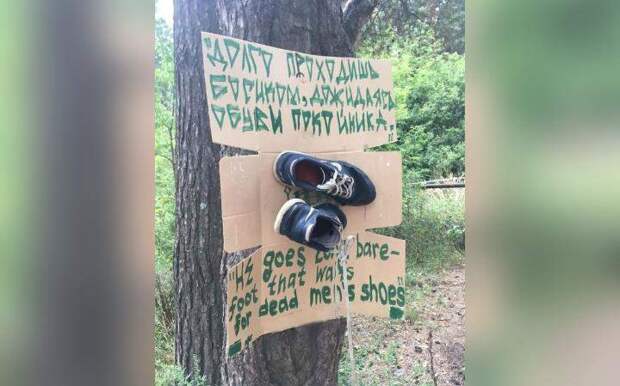 "ДОЛГО ПРОХОДИШЬ
БОСИКОМ, ДОЖИДАЯСЬ
ОБУВИ ПОКОЙНИКА."
"He goes long bare-
foot that waits
for dead men's shoes"